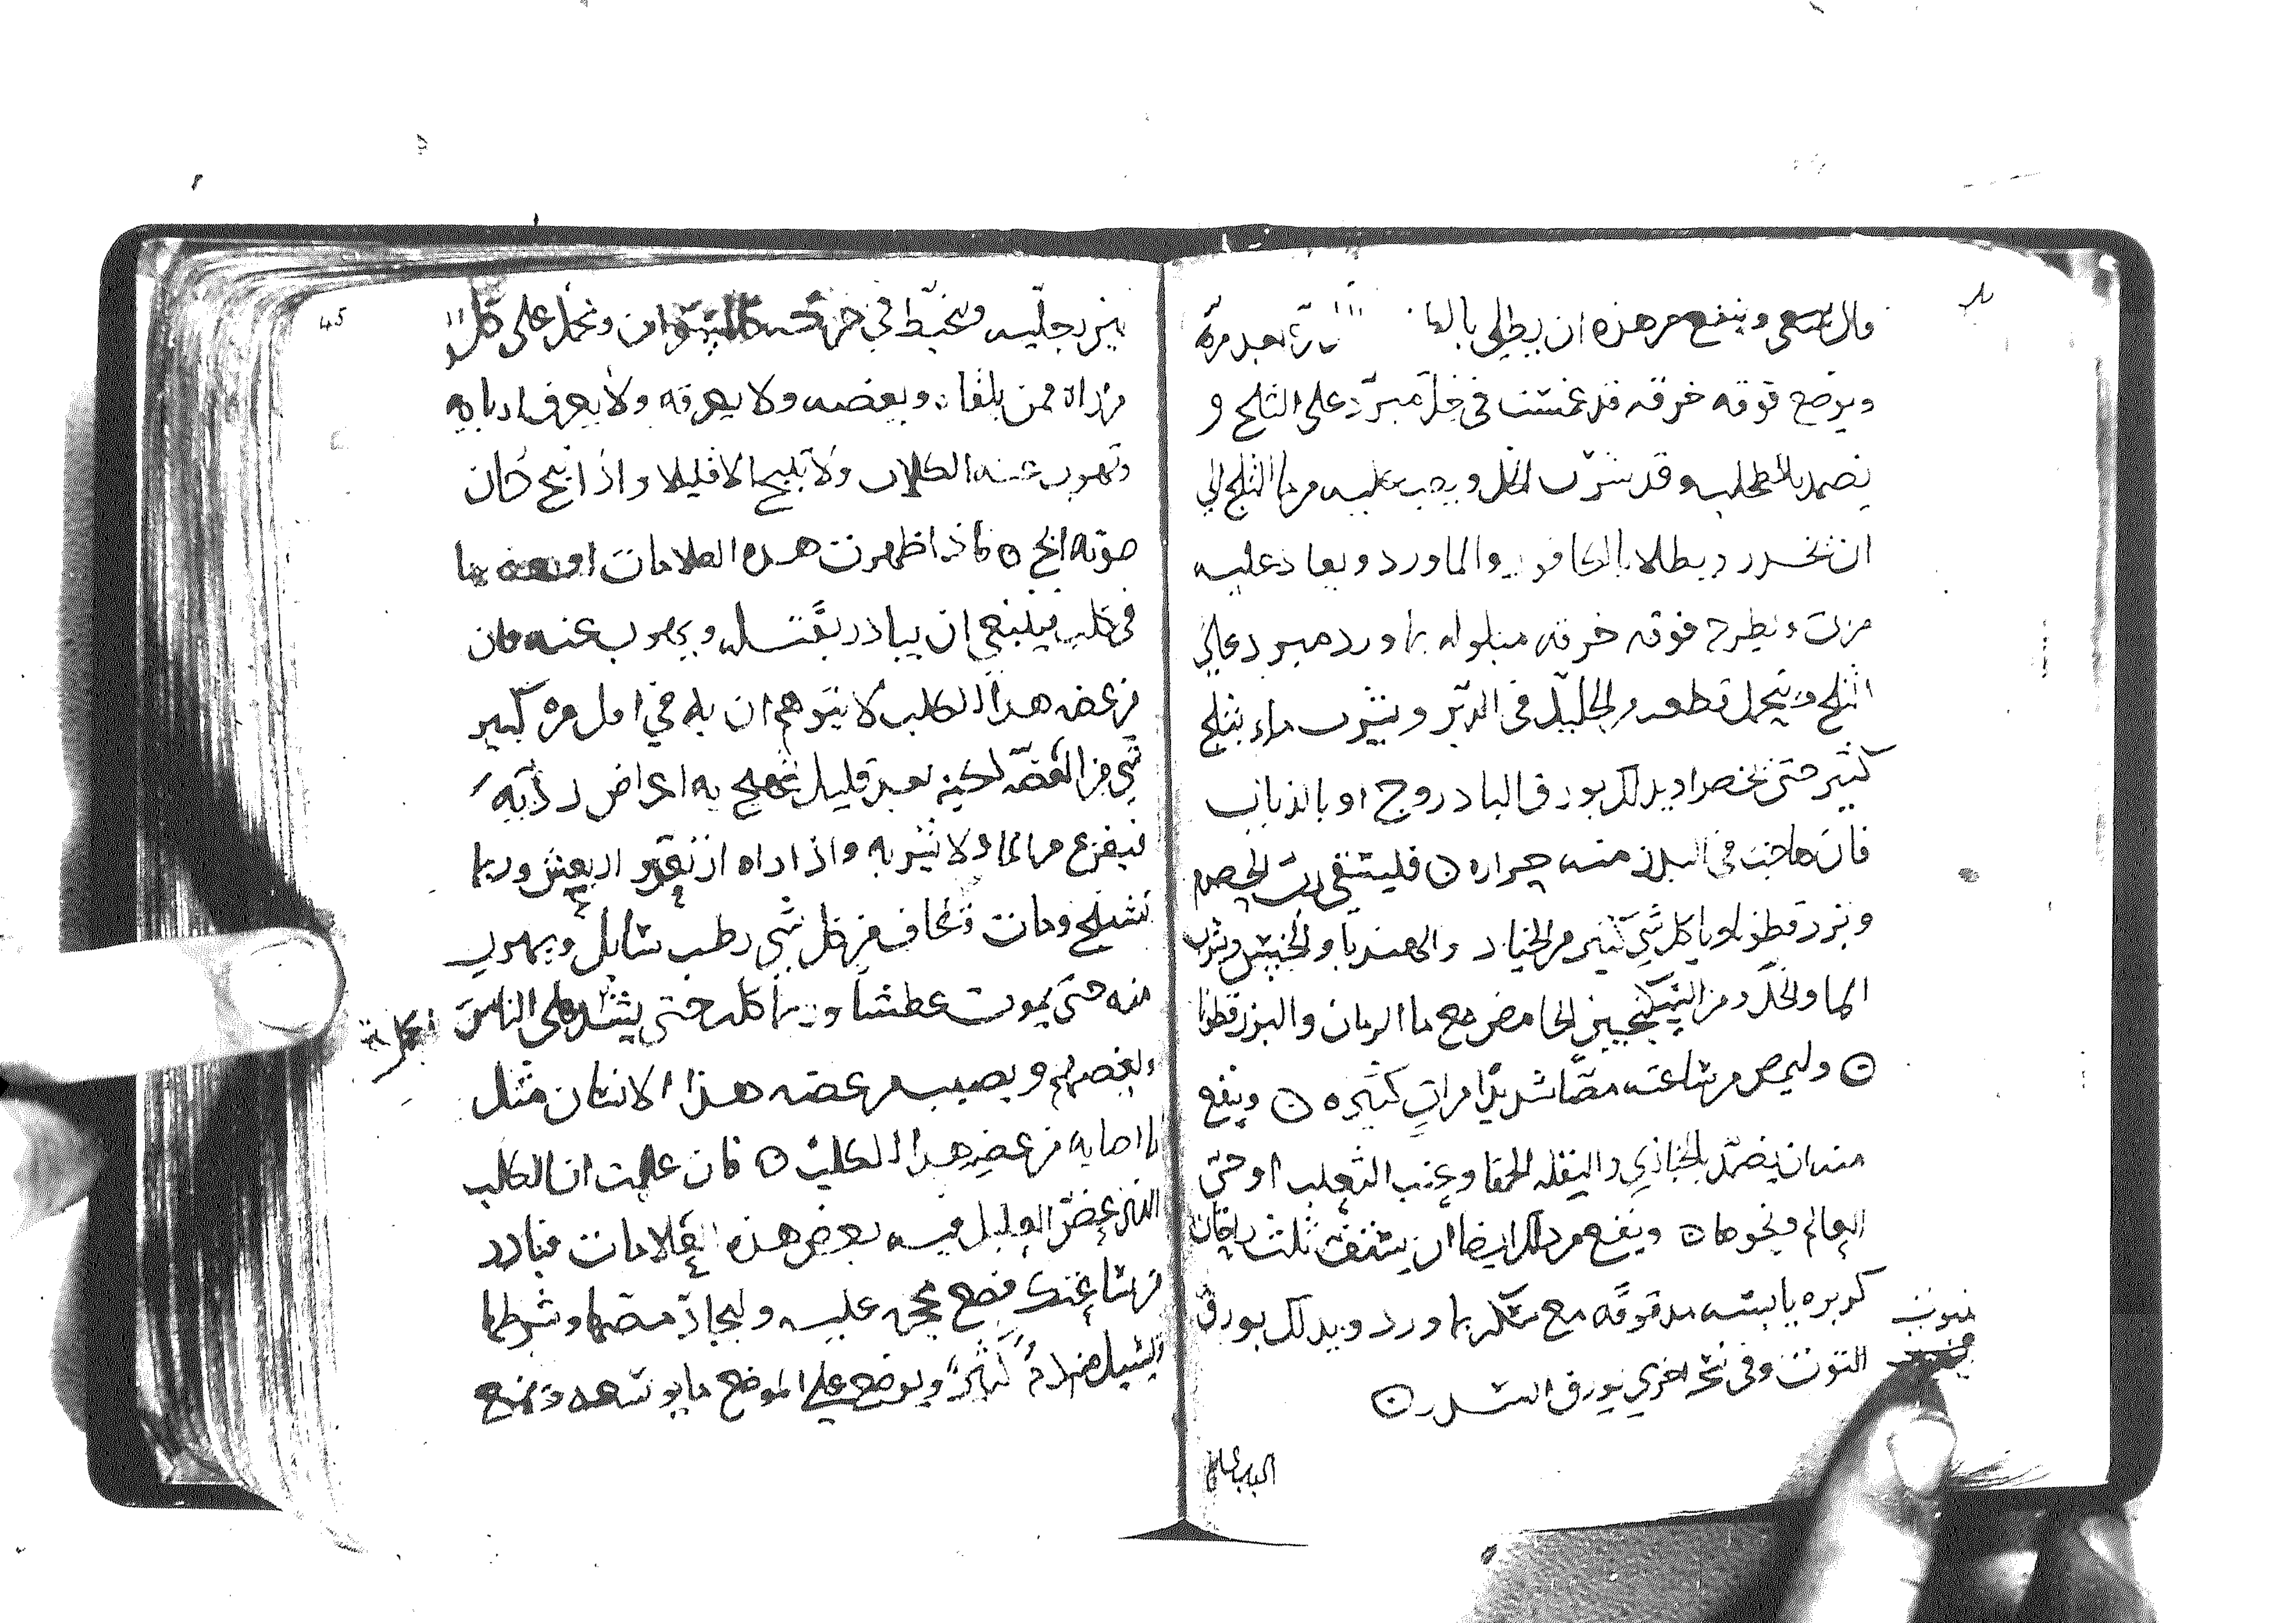 وينفع من هذه ان يطلى بالما مرة بعد مرة
ويوضع فوقه خرقه قد غمست في خل مبرد على الثلج و
يضمد بالطحلب وقد شرب الخل ويصب عليه من ما الثلج الى
ان تخدر ويطلا بالكافور والماورد ويعاد عليه
مرات ويطرح فوقه خرقه مبلوله بماورد مبرد على
الثلج ويتحمل قطعه من الجليد في الدبر ويشرب ماء بثلج
كثير حتى يخصر او يدلك بورق البادروج او بالذباب
فان هاجت في البدن منه حراره ۞ فليستقى رب الحصرم
وبزر قطونا وياكل شي كثير من الخيار والهندبا والخس ويشرب
الما والخل ومن السكنجبين الحامض مع ما الرمان والبزرقطونا
۞ وليمص من ساعته مصا شديدا مرات كثيره ۞ وينفع
منه ان يضمد بالخبازي والبقله الحمقا وعنب الثعلب او حي
العالم ونحوها ۞ وينفع من ذلك ايضا ان يستف ثلث راحات
كزبره يابسه مدقوقه مع سكر بماورد ويدلك بورق
التوت وفي نسخه اخرى بورق السدر ۞
الباب
45
بين رجليه ويتخبط في حركته كالسكران ويحمل على كل
من راه ممن يلقاه ويعضه ولا يعرفه ولا يعرف اربابه
وتهرب عنه الكلاب ولا ينبح الا قليلا واذا نبح كان
صوته ابح ۞ فاذا ظهرت هذه العلامات او بعضها
في كلب فينبغي ان يبادر بقتله ويهرب عنه فان
من عضه هذا الكلب لا يتوهم ان به في اول مره كبير
شي من العضه لكنه بعد قليل به اعراض رديه
فيفزع من الما ولا يشربه واذا راه ارتعد وارتعش وربما
تشنج ومات وتخاف من كل شي رطب سايل ويهرب
منه حتى يموت عطشا وربما كلب حتى يشد على الناس
ويعضهم ويصيب من عضه هذا الانسان مثل
ما اصابه من عض هذا الكلب ۞ فان علمت ان الكلب
الذي عض العليل فيه بعض هذه العلامات فبادر
من ساعتك فضع محجمه عليه وليجاد مصها وشرطها
ليسيل منه دم كثير ويوضع على الموضع ما يوسعه ويمنع